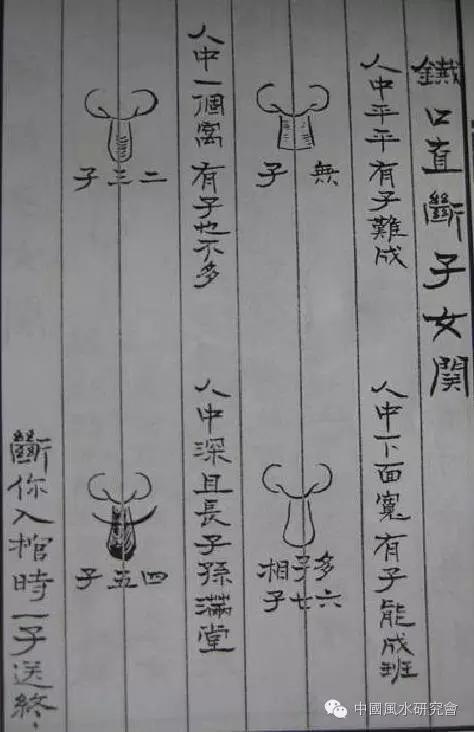 鐵口直斷子女関
人中平平有子難成
人中下面寬有子能成班
無子
多子相
六七子
人中一個窩有子也不多
人中深且長子孫滿堂
二三子
四五子
斷你入棺時一子送終.
中國風水研究會